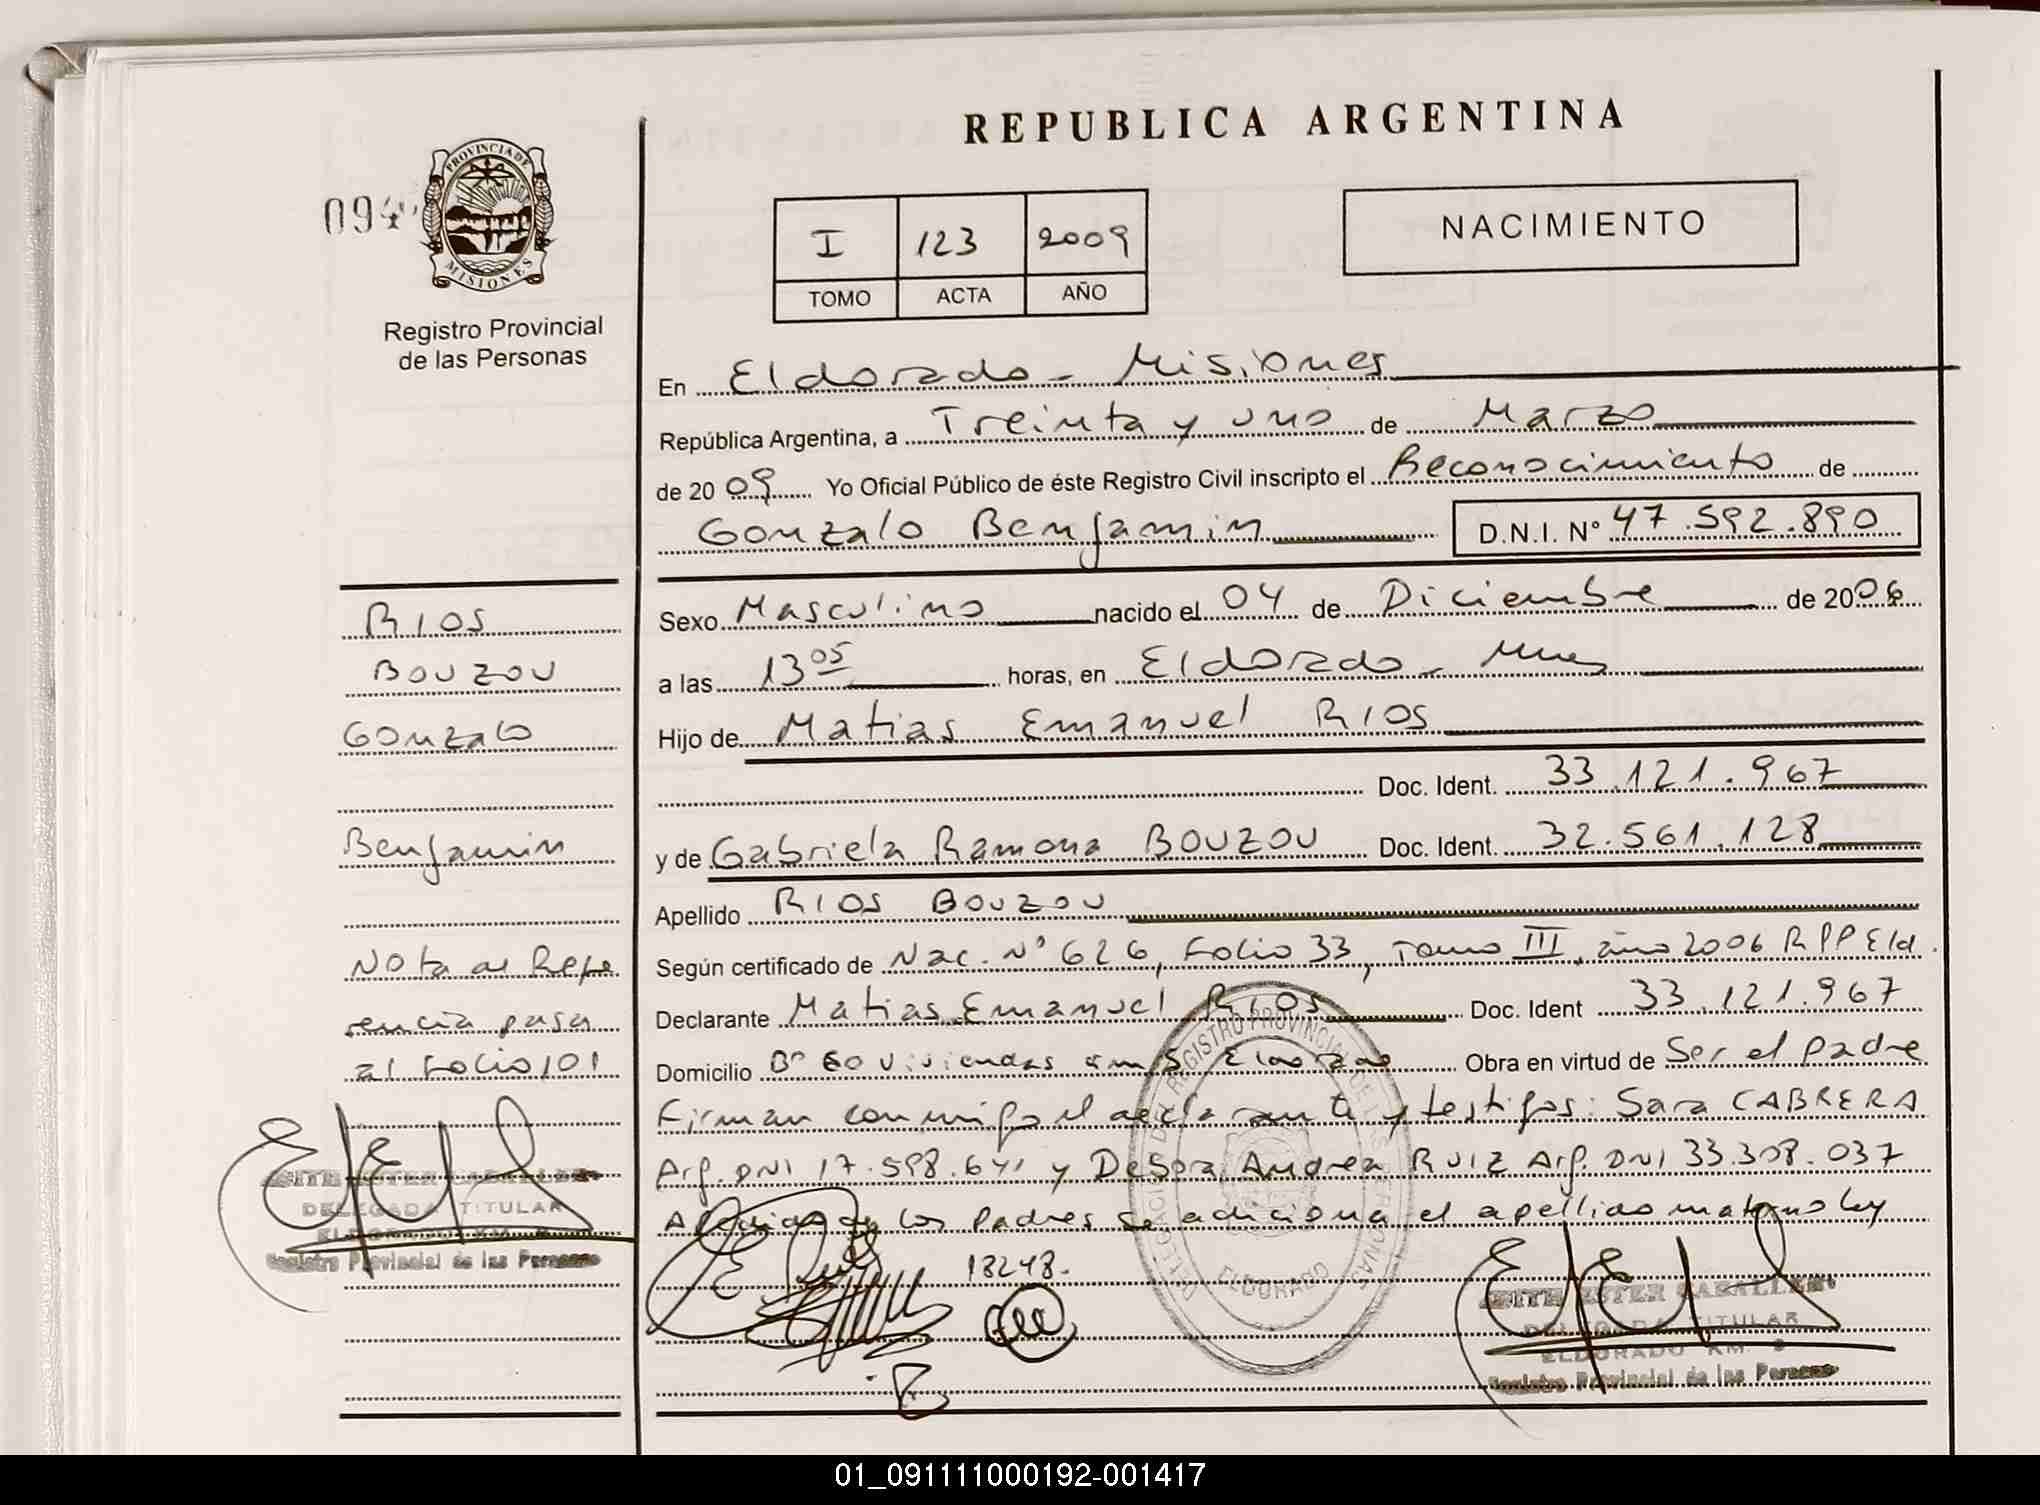 REPUBLICA ARGENTINA
094
PROVINCIA DE MISIONES
Registro Provincial
de las Personas
I 123 2009
TOMO ACTA AÑO
NACIMIENTO
En Eldorado - Misiones
República Argentina, a Treinta y uno de Marzo
de 2009 Yo Oficial Público de éste Registro Civil inscripto el Reconocimiento de
Gonzalo Benjamin D.N.I. Nº 47.592.890
Sexo Masculino nacido el 04 de Diciembre de 2006
a las 13 05 horas, en Eldorado - Mnes
Hijo de Matias Emanuel RIOS
Doc. Ident. 33.121.967
y de Gabriela Ramona BOUZOU Doc. Ident. 32.561.128
Apellido RIOS BOUZOU
Según certificado de Nac. Nº 626, Folio 33, Tomo III, año 2006 RPP Eld.
Declarante Matias Emanuel RIOS Doc. Ident 33.121.967
Domicilio Bº 60 viviendas Obra en virtud de Ser el padre
Firman conmigo el declarante y testigos: Sara CABRERA
Arg. DNI 17.598.641 y Andrea RUIZ Arg. DNI 33.308.037
A de los Padres se adiciona el apellido materno ley
18248.
RIOS
BOUZOU
Gonzalo
Benjamin
Nota de Refe
rencia pasa
al Folio 101
DELEGADA TITULAR
ELDORADO KM.
Registro Provincial de las Personas
DELEGACION DEL REGISTRO PROVINCIAL DE LAS PERSONAS
ELDORADO
DELEGADA TITULAR
ELDORADO KM.
Registro Provincial de las Personas
01_091111000192-001417